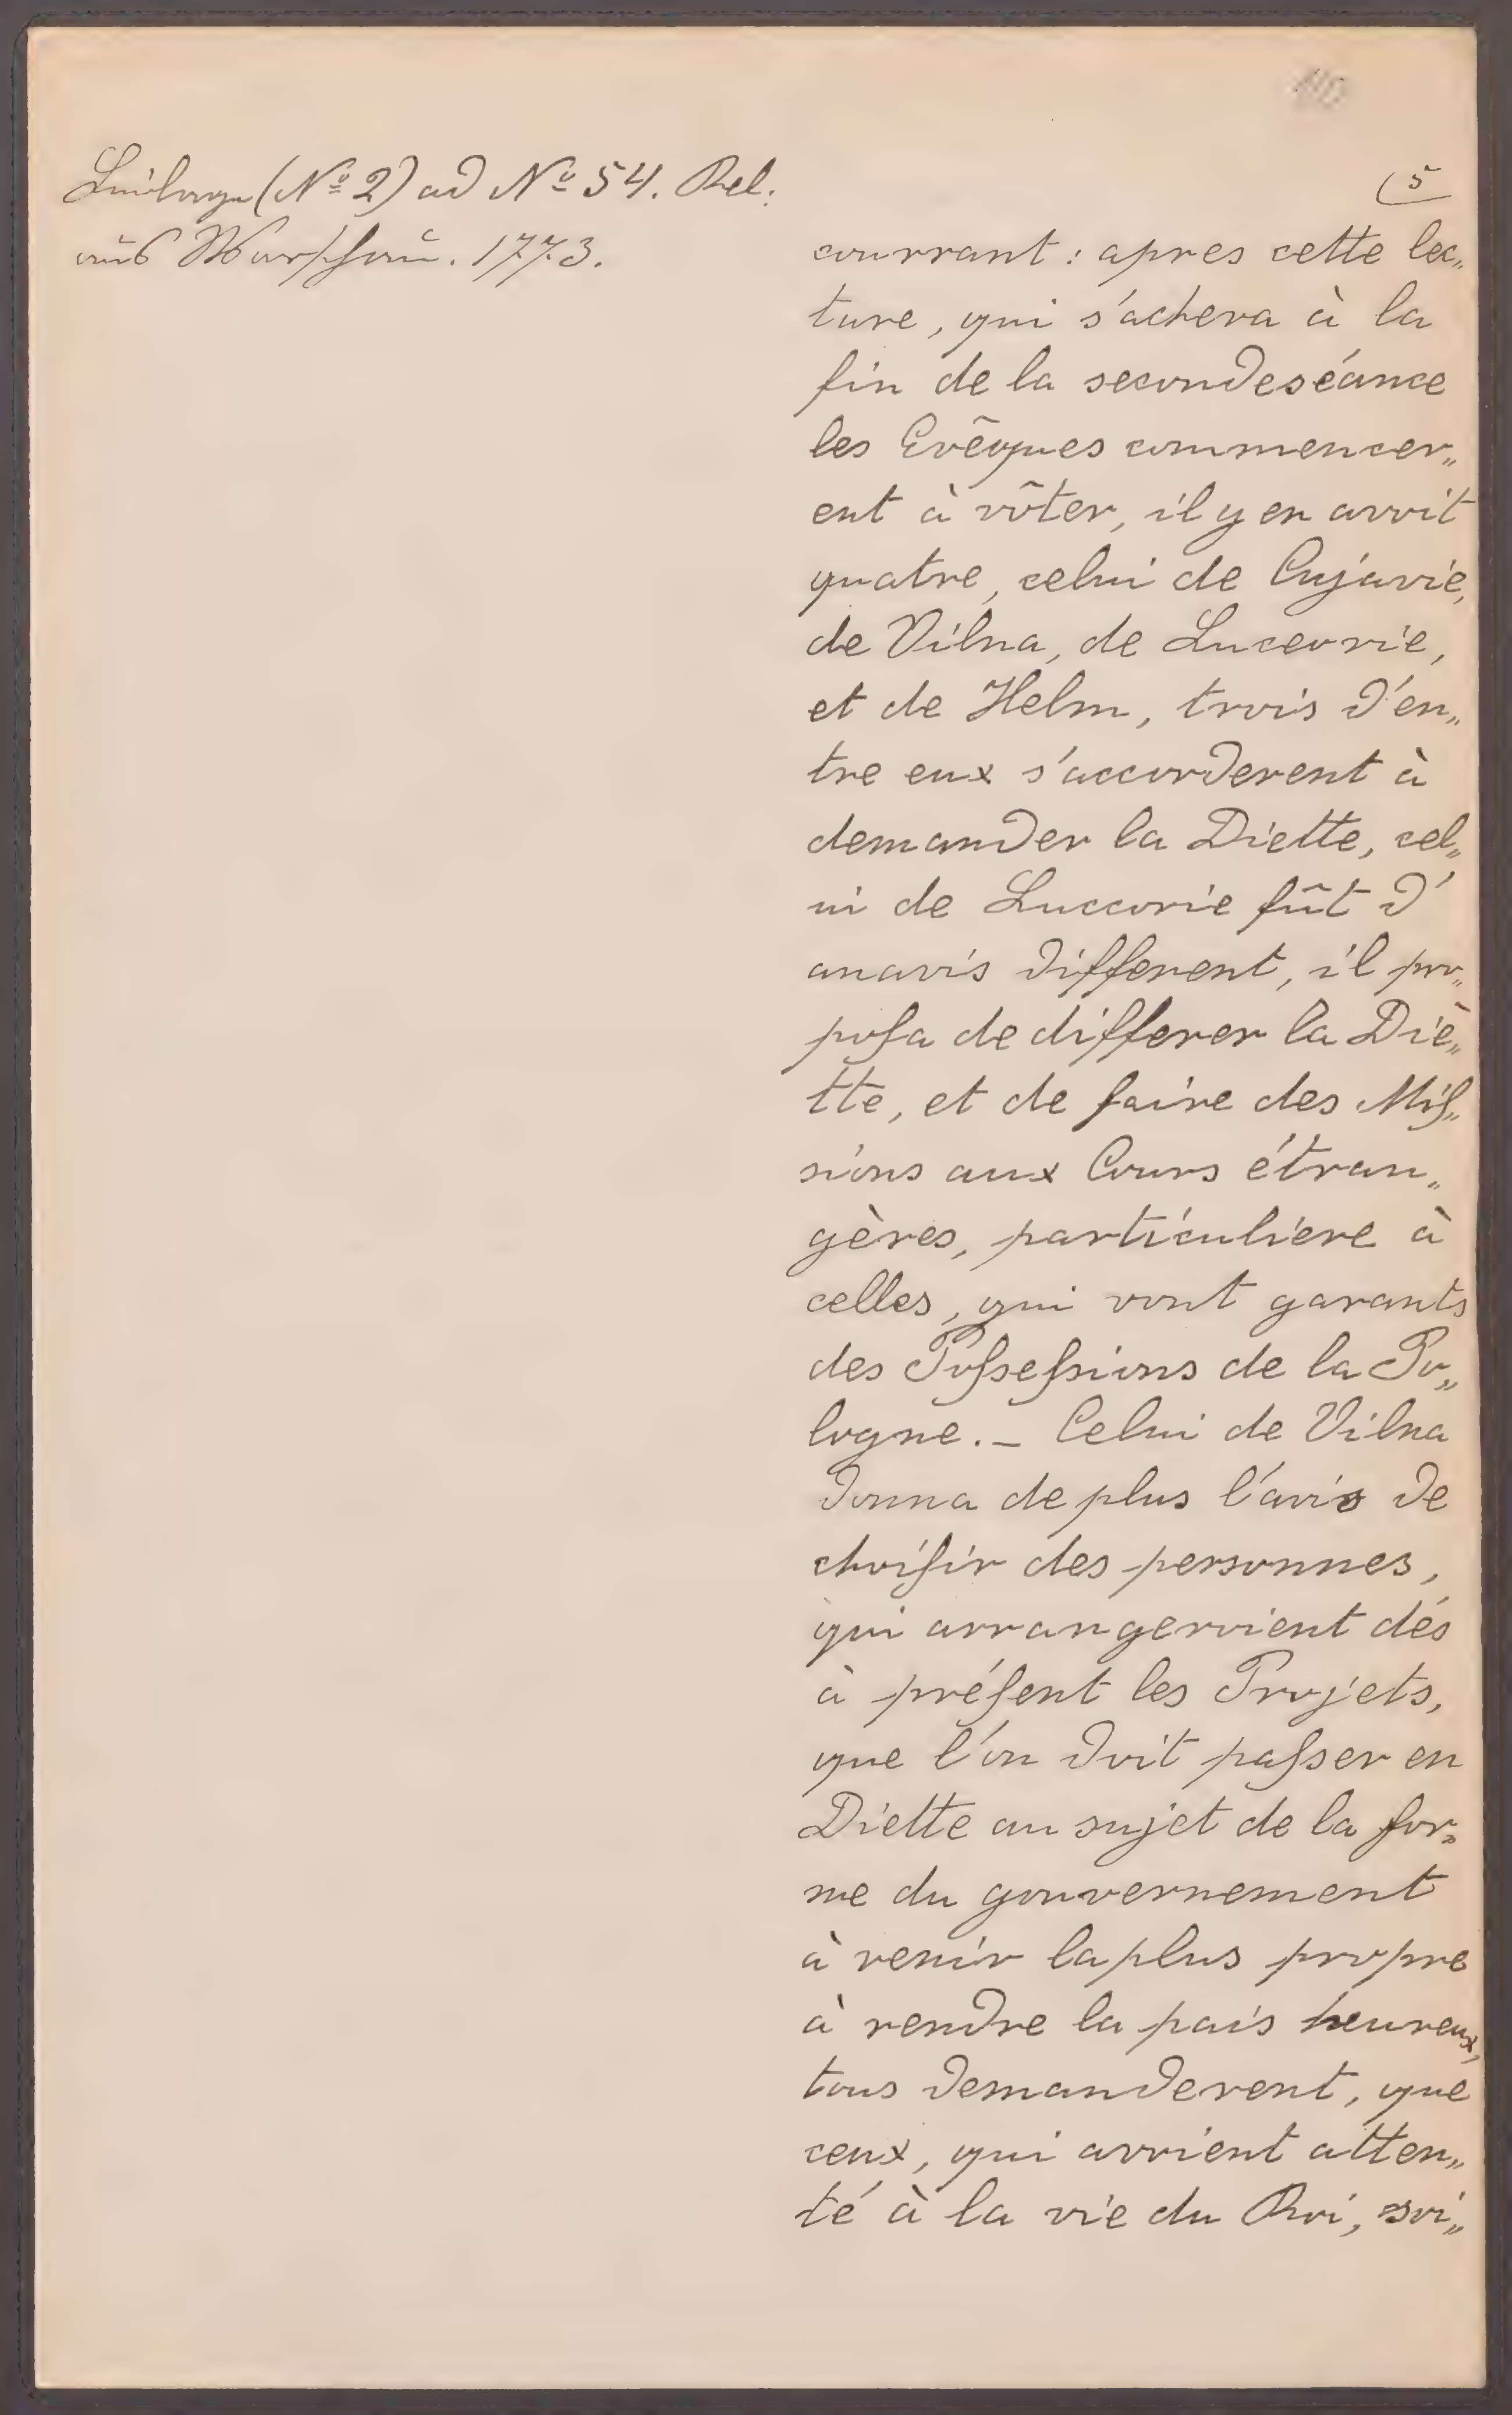 110
Beilage (Nº 2) ad Nº 54. Rel:
aus Warschau. 1773.
5
courrant: apres cette lec„
ture, qui s'acheva à la
fin de la secondeséance
les Evêques commencer„
ent à vôter, il y en avoit
quatre, celui de Cujavie,
de Vilna, de Luceorie,
et de Helm, trois d'en„
tre eux s'accorderent à
demander la Diette, cel„
ui de Luccorie fût d'
unavis different, il pro„
posa de differer la Diè„
tte, et de faire des Mis„
sions aux Cours étran„
gères, particuliere à
celles, qui sont garants
des Possessions de la Po„
logne. _ Celui de Vilna
donna de plus l'avis de
choisir des personnes,
qui arrangeroient dés
à présent les Projets,
que l'on doit passer en
Diette au sujet de la for„
me du gouvernement
à venir la plus propre
à rendre la païs heureux,
tous demanderent, que
ceux, qui avoient atten„
té à la vie du Roi, soi„